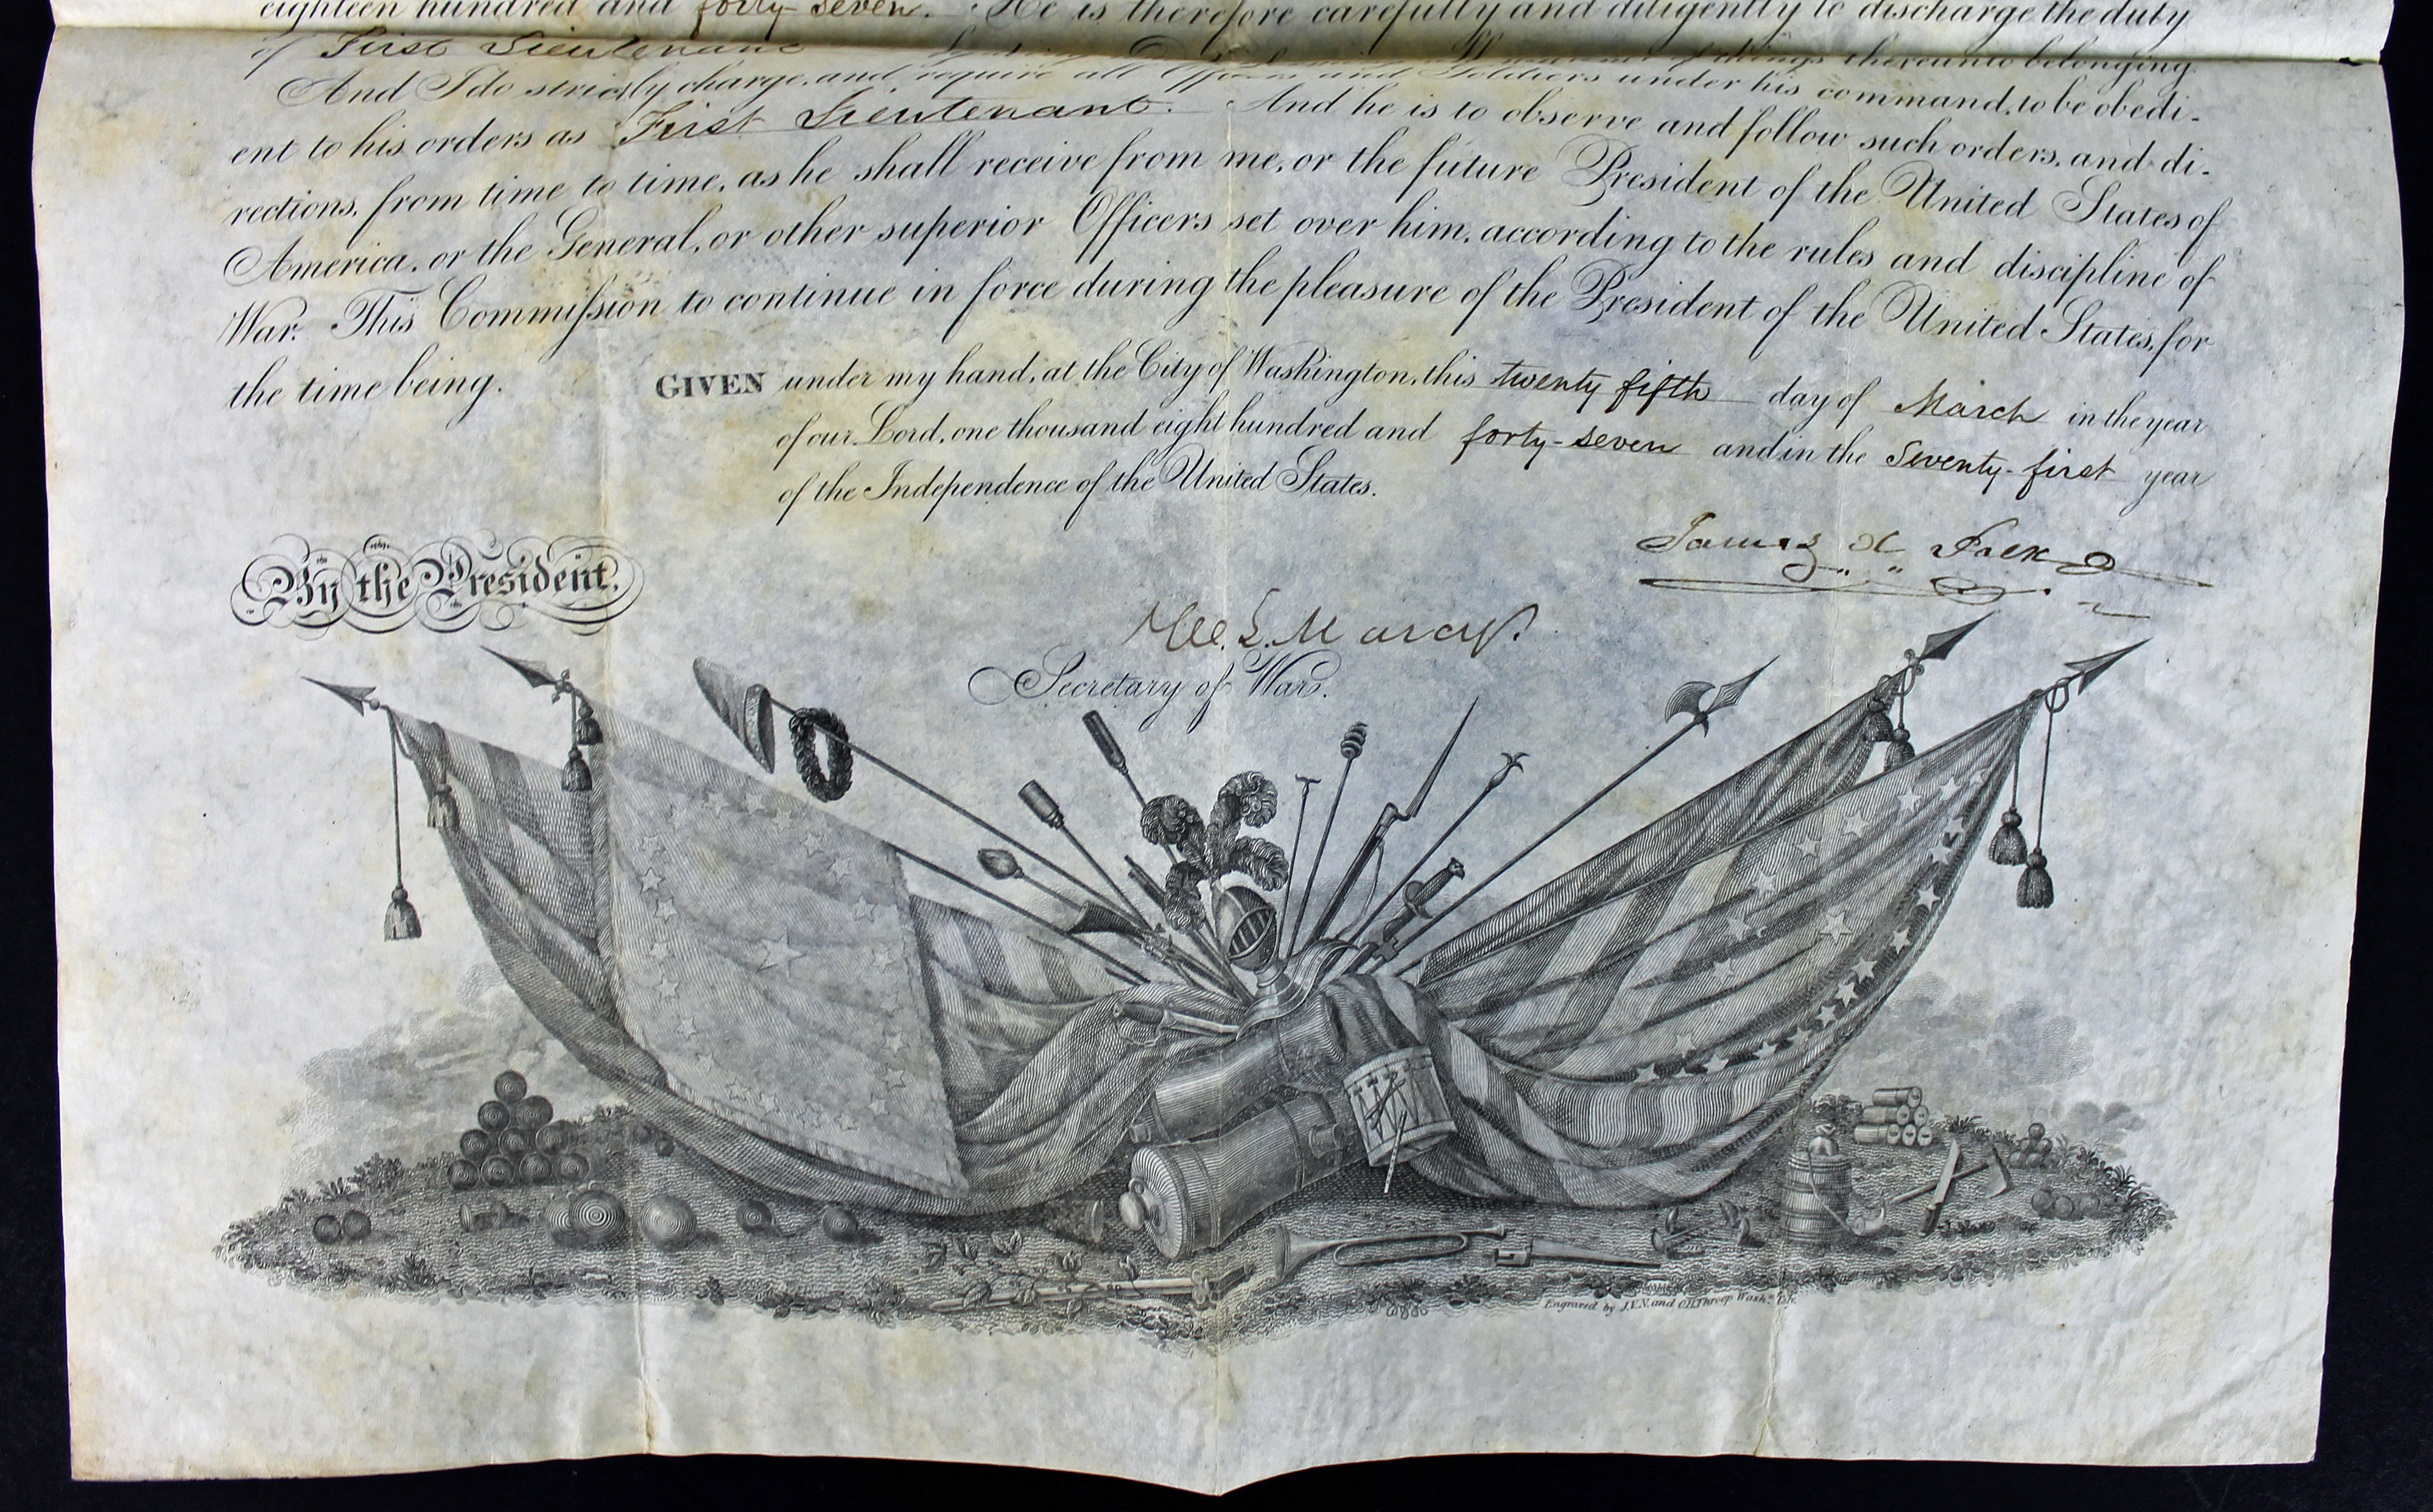 eighteen hundred and forty-seven. He is therefore carefully and diligently to discharge the duty
of First Lieutenant things thereunto belonging.
And I do strictly charge, and require all Officers and Soldiers under his command, to be obedi-
ent to his orders as First Lieutenant. And he is to observe and follow such orders, and di-
rections, from time to time, as he shall receive from me, or the future President of the United States of
America, or the General, or other superior Officers set over him, according to the rules and discipline of
War. This Commission to continue in force during the pleasure of the President of the United States, for
the time being.
GIVEN under my hand, at the City of Washington, this twenty fifth day of March in the year
of our Lord, one thousand eight hundred and forty-seven and in the Seventy-first year
of the Independence of the United States.
James K. Polk
By the President,
W. L. Marcy.
Secretary of War.
Engraved by J.V.N. and O.H. Throop Washn. City.